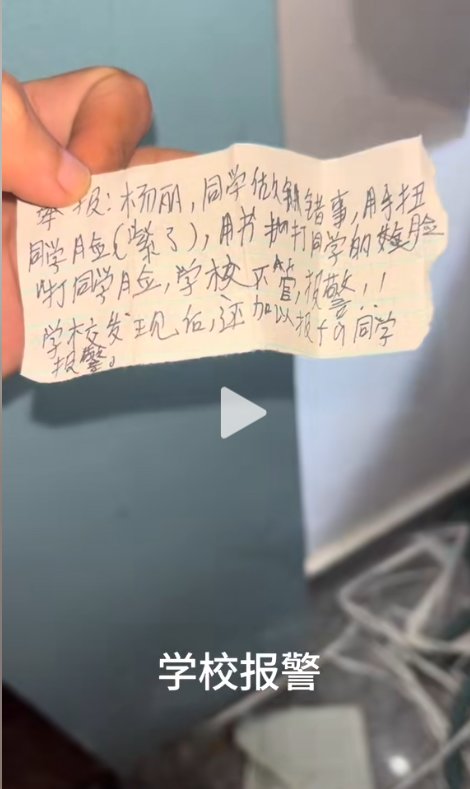 举报:杨丽,同学做错事,用手扭
同学脸(紫了),用书打同学的脸
打同学脸,学校不管,报警,!
学校发现后,还加以报同学
报警。
学校报警